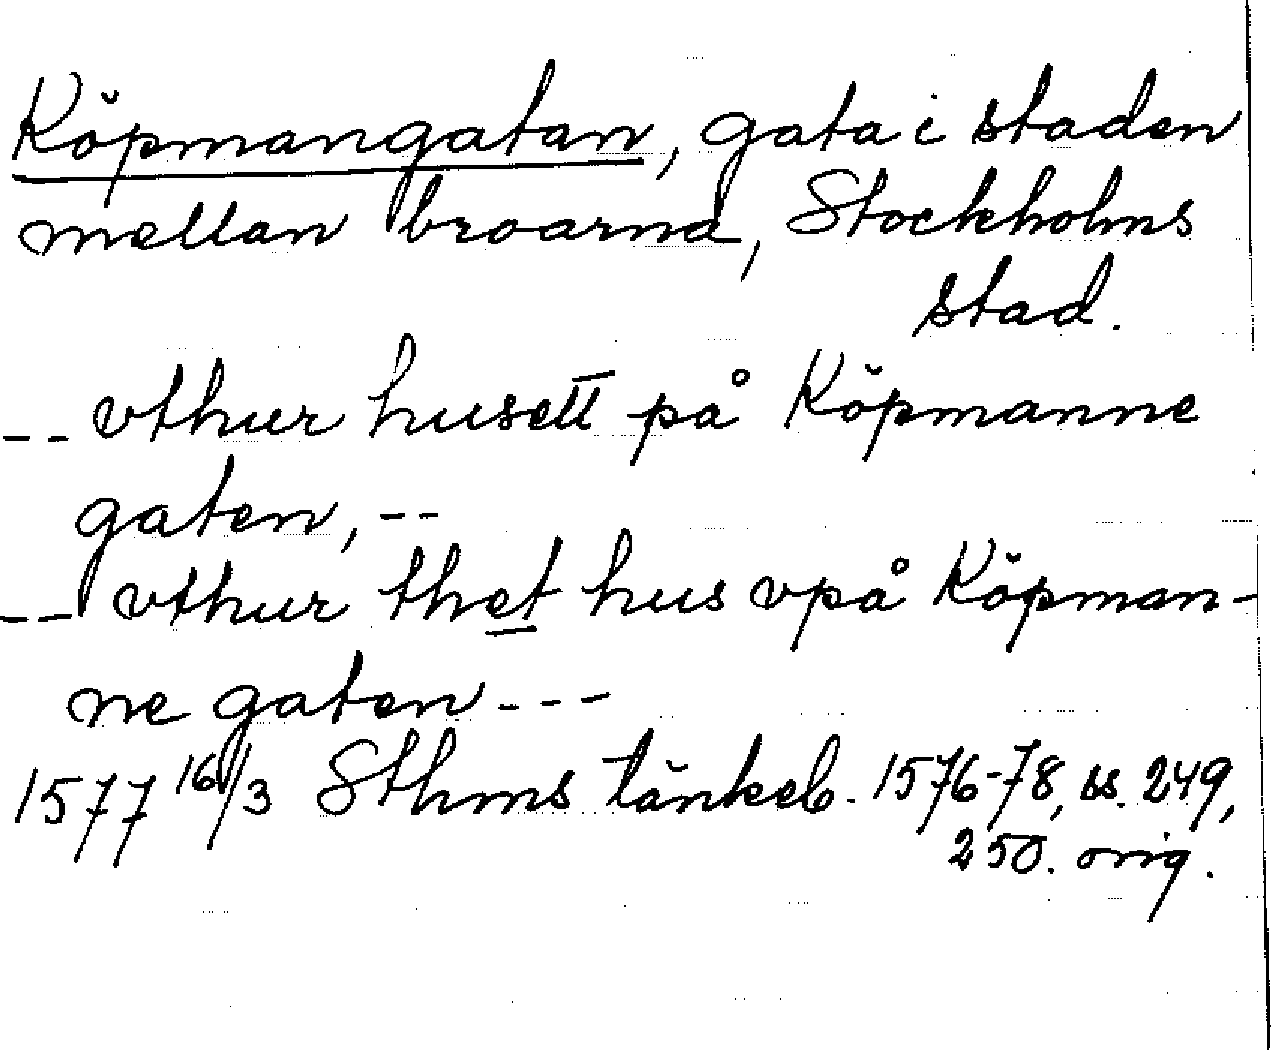 Köpmangatan, gata i staden
mellan broarna, Stockholms
stad.
-- vthur husett på Köpmanne
gaten, --
-- vthur thet hus vpå Köpman-
ne gaten ---
1577 16/3 Sthms tänkeb. 1576-78, ss. 249,
250. orig.